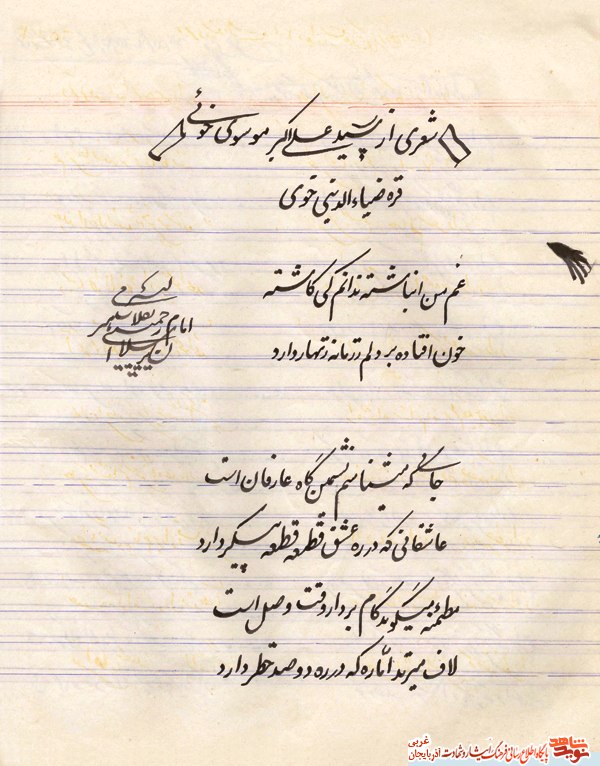 شعری از سید علی اکبر موسوی خوئی
قره ضیاءالدینی خوی
غم من انباشته ندانم کی کاشته
خون افتاده بر دلم زمانه زنهار دارد
امام خمینی
جائی که میشناسم نشمن گاه عارفان است
عاشقانی که در ره عشق قطعه قطعه پیکر دارد
مطمئنه میگوید گام بردار وقت وصل است
لاف میزند امّاره که در ره دو صد خطر دارد
نوید شاهد
پایگاه اطلاع رسانی فرهنگ ایثار و شهادت آذربایجان غربی